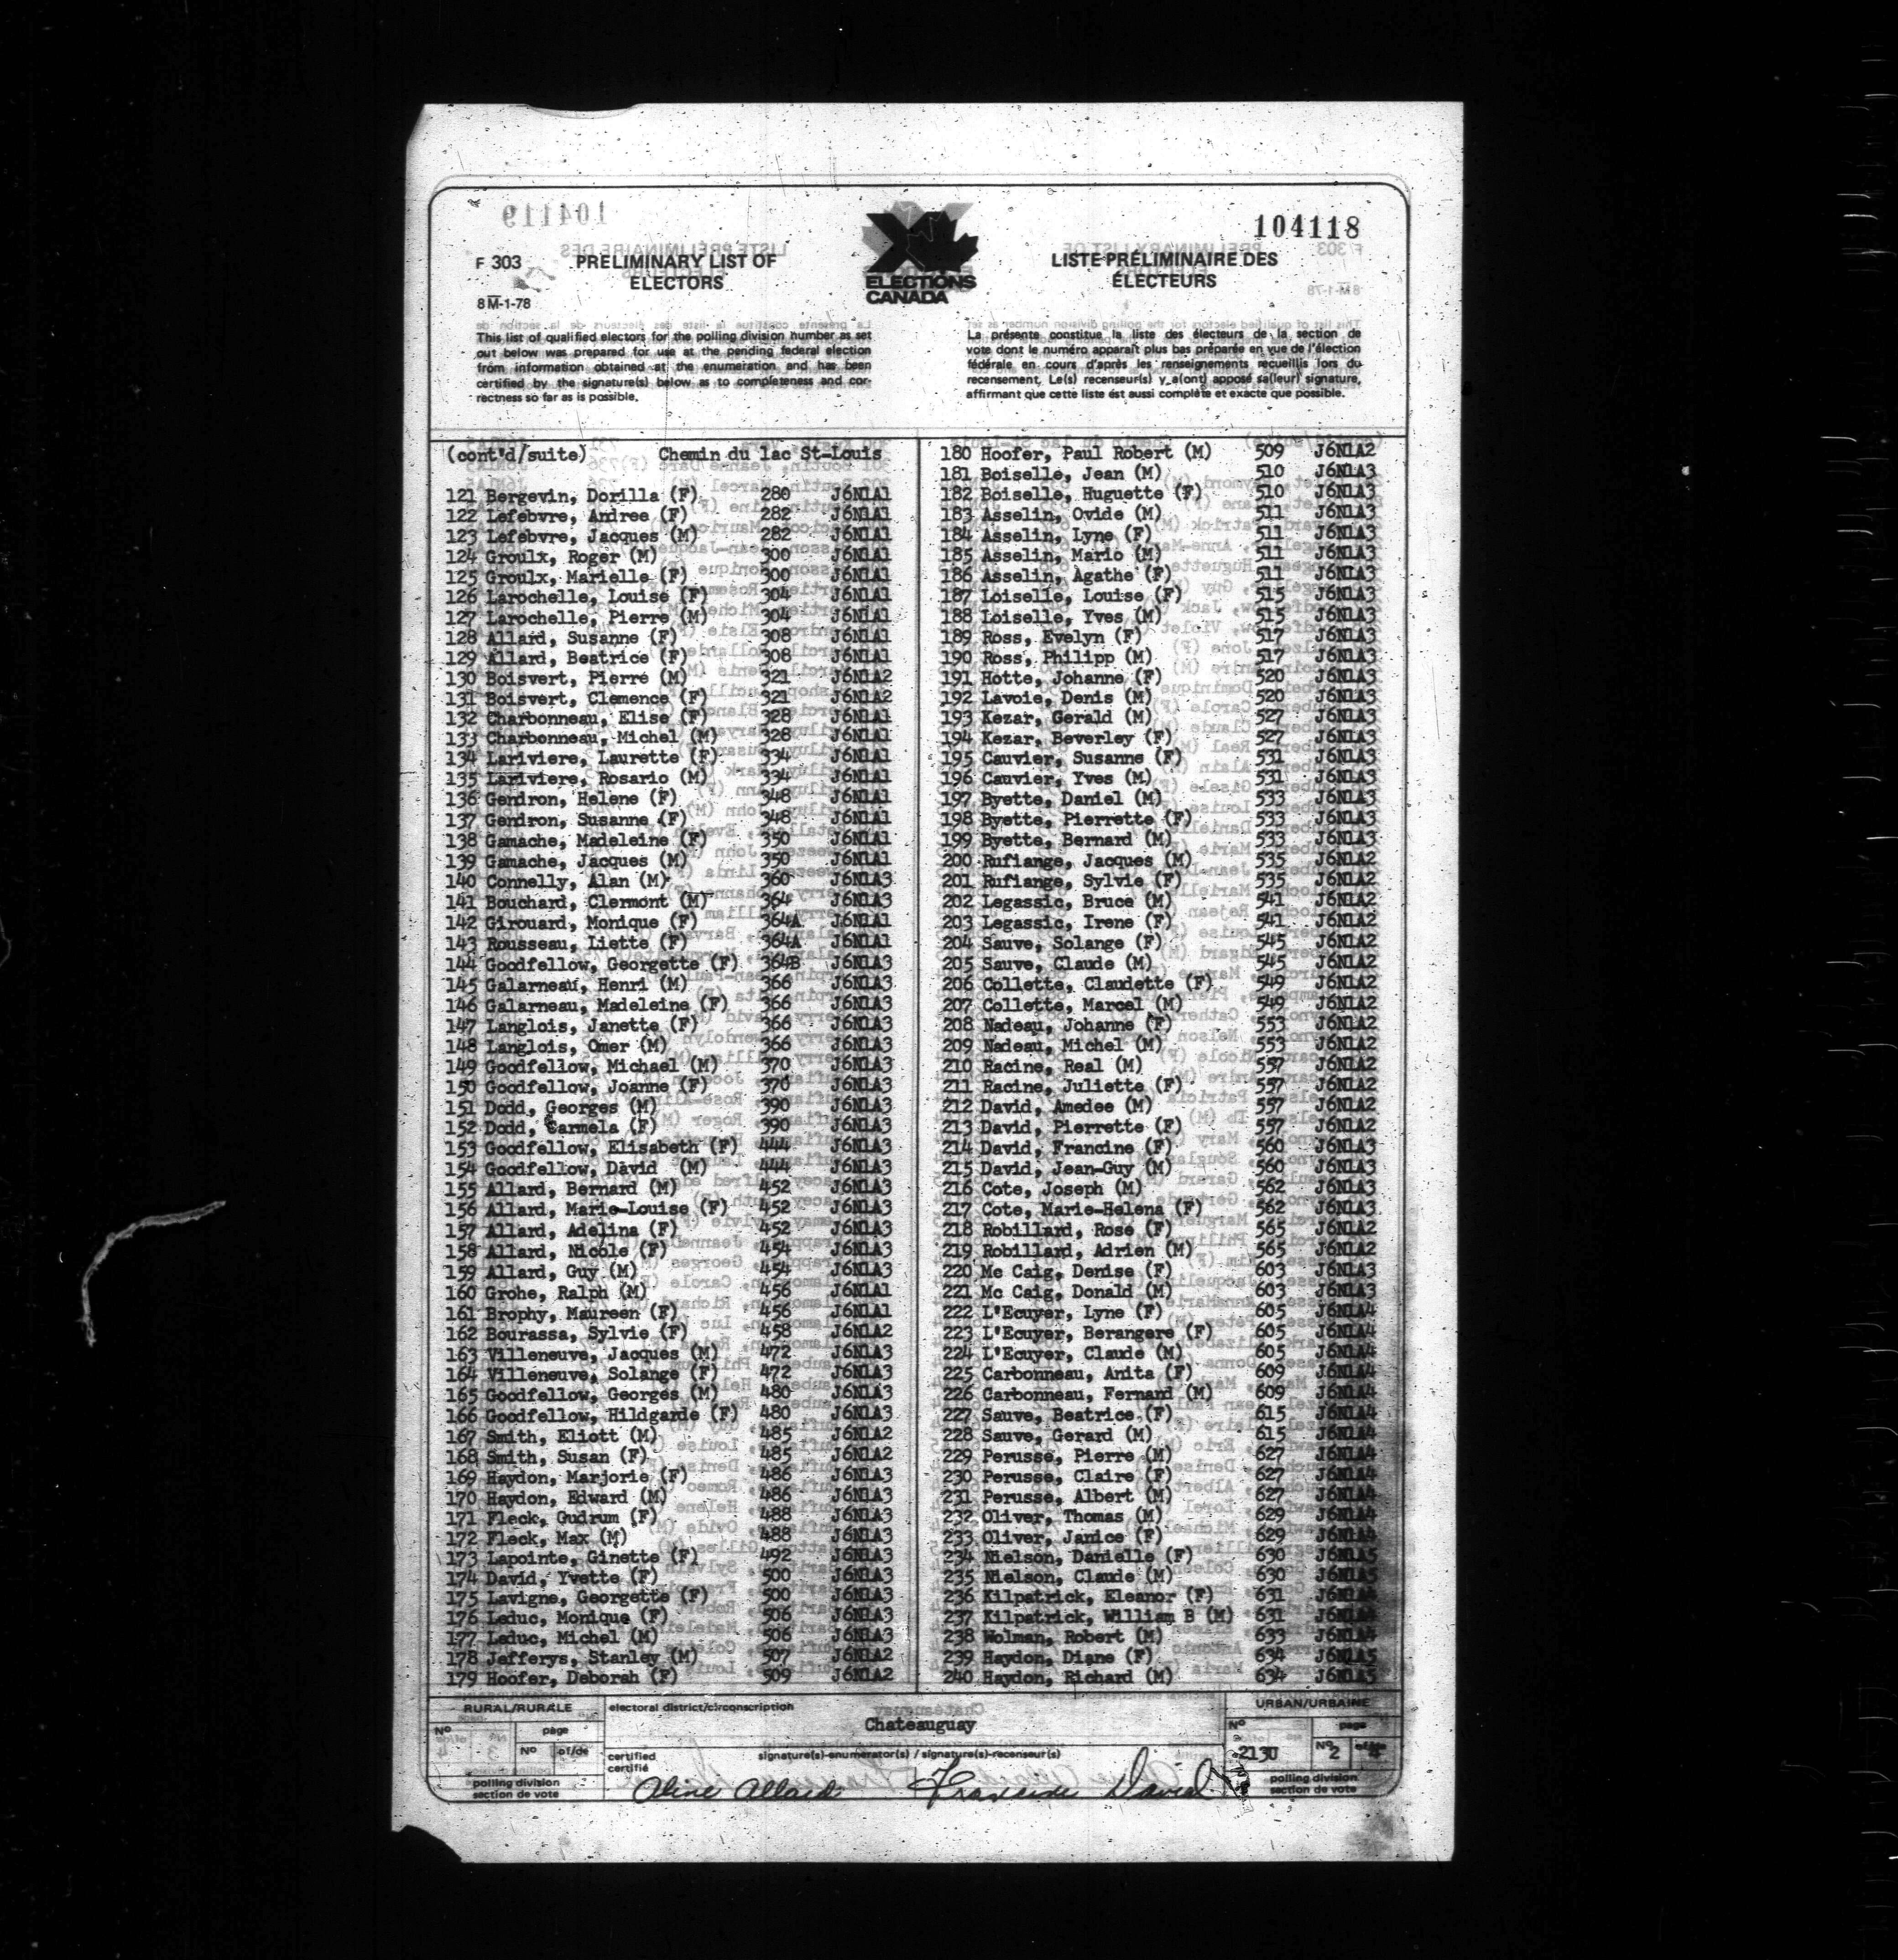 104118
F 303 PRELIMINARY LIST OF ELECTORS
8M-1-78
ELECTIONS CANADA
LISTE PRÉLIMINAIRE DES ÉLECTEURS
This list of qualified electors for the polling division number as set
out below was prepared for use at the pending federal election
from information obtained at the enumeration and has been
certified by the signature(s) below as to completeness and cor-
rectness so far as is possible.
La présente constitue la liste des électeurs de la section de
vote dont le numéro apparaît plus bas préparée en vue de l'élection
fédérale en cours d'après les renseignements recueillis lors du
recensement, Le(s) recenseur(s) y a(ont) apposé sa(leur) signature,
affirmant que cette liste est aussi complète et exacte que possible.
(cont'd/suite) Chemin du lac St-Louis
121 Bergevin, Dorilla (F) 280 J6N1A1
122 Lefebvre, Andree (F) 282 J6N1A1
123 Lefebvre, Jacques (M) 282 J6N1A1
124 Groulx, Roger (M) 300 J6N1A1
125 Groulx, Marielle (F) 300 J6N1A1
126 Larochelle, Louise (F) 304 J6N1A1
127 Larochelle, Pierre (M) 304 J6N1A1
128 Allard, Susanne (F) 308 J6N1A1
129 Allard, Beatrice (F) 308 J6N1A1
130 Boisvert, Pierre (M) 321 J6N1A2
131 Boisvert, Clemence (F) 321 J6N1A2
132 Charbonneau, Elise (F) 328 J6N1A1
133 Charbonneau, Michel (M) 328 J6N1A1
134 Lariviere, Laurette (F) 334 J6N1A1
135 Lariviere, Rosario (M) 334 J6N1A1
136 Gendron, Helene (F) 348 J6N1A1
137 Gendron, Susanne (F) 348 J6N1A1
138 Gamache, Madeleine (F) 350 J6N1A1
139 Gamache, Jacques (M) 350 J6N1A1
140 Connelly, Alan (M) 360 J6N1A3
141 Bouchard, Clermont (M) 364 J6N1A3
142 Girouard, Monique (F) 364A J6N1A1
143 Rousseau, Liette (F) 364A J6N1A1
144 Goodfellow, Georgette (F) 364B J6N1A3
145 Galarneau, Henri (M) 366 J6N1A3
146 Galarneau, Madeleine (F) 366 J6N1A3
147 Langlois, Janette (F) 366 J6N1A3
148 Langlois, Omer (M) 366 J6N1A3
149 Goodfellow, Michael (M) 370 J6N1A3
150 Goodfellow, Joanne (F) 370 J6N1A3
151 Dodd, Georges (M) 390 J6N1A3
152 Dodd, Carmela (F) 390 J6N1A3
153 Goodfellow, Elisabeth (F) 444 J6N1A3
154 Goodfellow, David (M) 444 J6N1A3
155 Allard, Bernard (M) 452 J6N1A3
156 Allard, Marie-Louise (F) 452 J6N1A3
157 Allard, Adelina (F) 452 J6N1A3
158 Allard, Nicole (F) 454 J6N1A3
159 Allard, Guy (M) 454 J6N1A3
160 Grohe, Ralph (M) 456 J6N1A1
161 Brophy, Maureen (F) 456 J6N1A1
162 Bourassa, Sylvie (F) 458 J6N1A2
163 Villeneuve, Jacques (M) 472 J6N1A3
164 Villeneuve, Solange (F) 472 J6N1A3
165 Goodfellow, Georges (M) 480 J6N1A3
166 Goodfellow, Hildgarde (F) 480 J6N1A3
167 Smith, Eliott (M) 485 J6N1A2
168 Smith, Susan (F) 485 J6N1A2
169 Haydon, Marjorie (F) 486 J6N1A3
170 Haydon, Edward (M) 486 J6N1A3
171 Fleck, Gudrum (F) 488 J6N1A3
172 Fleck, Max (M) 488 J6N1A3
173 Lapointe, Ginette (F) 492 J6N1A3
174 David, Yvette (F) 500 J6N1A3
175 Lavigne, Georgette (F) 500 J6N1A3
176 Leduc, Monique (F) 506 J6N1A3
177 Leduc, Michel (M) 506 J6N1A3
178 Jefferys, Stanley (M) 507 J6N1A2
179 Hoofer, Deborah (F) 509 J6N1A2
180 Hoofer, Paul Robert (M) 509 J6N1A2
181 Boiselle, Jean (M) 510 J6N1A3
182 Boiselle, Huguette (F) 510 J6N1A3
183 Asselin, Ovide (M) 511 J6N1A3
184 Asselin, Lyne (F) 511 J6N1A3
185 Asselin, Mario (M) 511 J6N1A3
186 Asselin, Agathe (F) 511 J6N1A3
187 Loiselle, Louise (F) 515 J6N1A3
188 Loiselle, Yves (M) 515 J6N1A3
189 Ross, Evelyn (F) 517 J6N1A3
190 Ross, Philipp (M) 517 J6N1A3
191 Hotte, Johanne (F) 520 J6N1A3
192 Lavoie, Denis (M) 520 J6N1A3
193 Kezar, Gerald (M) 527 J6N1A3
194 Kezar, Beverley (F) 527 J6N1A3
195 Cauvier, Susanne (F) 531 J6N1A3
196 Cauvier, Yves (M) 531 J6N1A3
197 Byette, Daniel (M) 533 J6N1A3
198 Byette, Pierrette (F) 533 J6N1A3
199 Byette, Bernard (M) 533 J6N1A3
200 Rufiange, Jacques (M) 535 J6N1A2
201 Rufiange, Sylvie (F) 535 J6N1A2
202 Legassic, Bruce (M) 541 J6N1A2
203 Legassic, Irene (F) 541 J6N1A2
204 Sauve, Solange (F) 545 J6N1A2
205 Sauve, Claude (M) 545 J6N1A2
206 Collette, Claudette (F) 549 J6N1A2
207 Collette, Marcel (M) 549 J6N1A2
208 Nadeau, Johanne (F) 553 J6N1A2
209 Nadeau, Michel (M) 553 J6N1A2
210 Racine, Real (M) 557 J6N1A2
211 Racine, Juliette (F) 557 J6N1A2
212 David, Amedee (M) 557 J6N1A2
213 David, Pierrette (F) 557 J6N1A2
214 David, Francine (F) 560 J6N1A3
215 David, Jean-Guy (M) 560 J6N1A3
216 Cote, Joseph (M) 562 J6N1A3
217 Cote, Marie-Helena (F) 562 J6N1A3
218 Robillard, Rose (F) 565 J6N1A2
219 Robillard, Adrien (M) 565 J6N1A2
220 Mc Caig, Denise (F) 603 J6N1A3
221 Mc Caig, Donald (M) 603 J6N1A3
222 L'Ecuyer, Lyne (F) 605 J6N1A4
223 L'Ecuyer, Berangere (F) 605 J6N1A4
224 L'Ecuyer, Claude (M) 605 J6N1A4
225 Carbonneau, Anita (F) 609 J6N1A4
226 Carbonneau, Fernand (M) 609 J6N1A4
227 Sauve, Beatrice (F) 615 J6N1A4
228 Sauve, Gerard (M) 615 J6N1A4
229 Perusse, Pierre (M) 627 J6N1A4
230 Perusse, Claire (F) 627 J6N1A4
231 Perusse, Albert (M) 627 J6N1A4
232 Oliver, Thomas (M) 629 J6N1A4
233 Oliver, Janice (F) 629 J6N1A4
234 Nielson, Danielle (F) 630 J6N1A5
235 Nielson, Claude (M) 630 J6N1A5
236 Kilpatrick, Eleanor (F) 631 J6N1A4
237 Kilpatrick, William B (M) 631 J6N1A4
238 Wolman, Robert (M) 633 J6N1A4
239 Haydon, Diane (F) 634 J6N1A5
240 Haydon, Richard (M) 634 J6N1A5
RURAL/RURALE
Nº page
Nº of/de
polling division
section de vote
electoral district/circonscription
Chateauguay
certified signature(s)-enumerator(s) / signature(s)-recenseur(s)
certifié
Aline Allard Francine David
URBAN/URBAINE
Nº page
213U Nº 2 of/de 4
polling division
section de vote